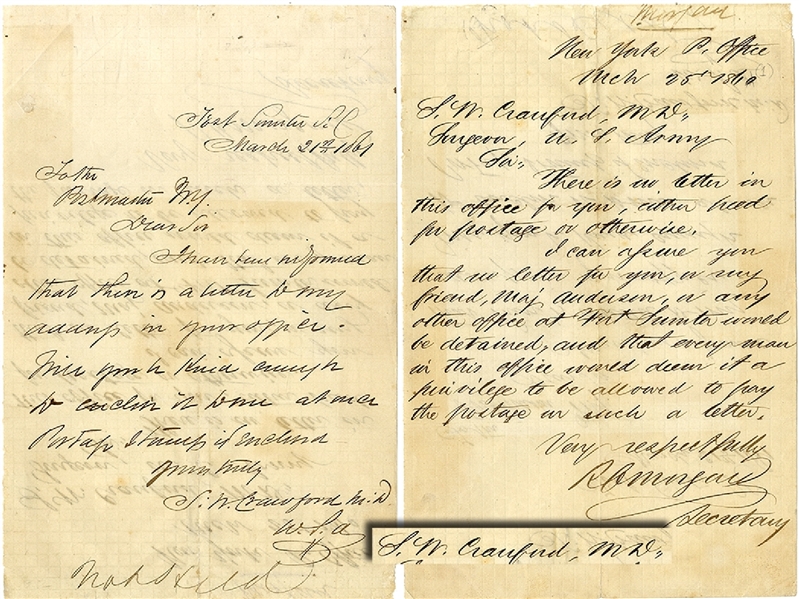 Fort Sumter S.C.
March 21st 1861
To the
Postmaster N.Y.
Dear Sir
I have been informed
that there is a letter to my
address in your office.
Will you be kind enough
to enclose it to me at once
Postage Stamp is enclosed
yours truly
S. W. Crawford M.D.
U.S.A
Not Held
Morgan
New York P. Office
Mch 25th 1860
S. W. Crawford, M.D.,
Surgeon, U. S. Army
Sir:
There is no letter in
this office for you, either held
for postage or otherwise.
I can assure you
that no letter for you, or my
friend, Maj. Anderson, or any
other office at Fort Sumter would
be detained, and that every man
in this office would deem it a
privilege to be allowed to pay
the postage on such a letter.
Very respectfully
R A Morgan
Secretary
S. W. Crawford, M.D.,